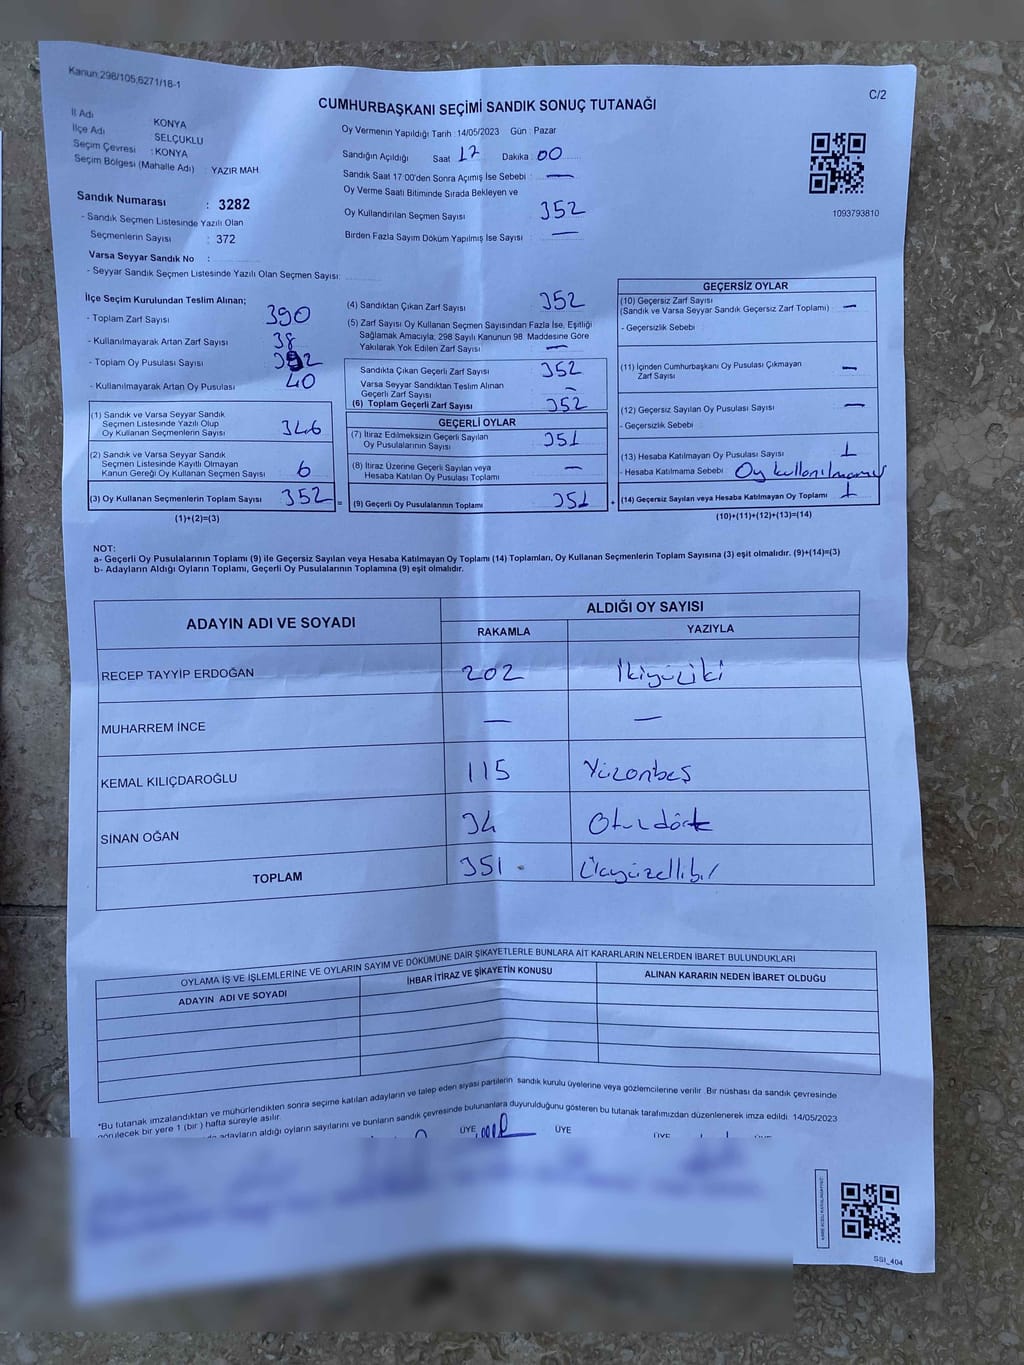 Kanun:298/105,6271/18-1
C/2
CUMHURBAŞKANI SEÇİMİ SANDIK SONUÇ TUTANAĞI
İl Adı KONYA
İlçe Adı SELÇUKLU
Seçim Çevresi : KONYA
Seçim Bölgesi (Mahalle Adı) : YAZIR MAH
Sandık Numarası : 3282
- Sandık Seçmen Listesinde Yazılı Olan
Seçmenlerin Sayısı : 372
Varsa Seyyar Sandık No :
- Seyyar Sandık Seçmen Listesinde Yazılı Olan Seçmen Sayısı:
Oy Vermenin Yapıldığı Tarih : 14/05/2023 Gün : Pazar
Sandığın Açıldığı Saat 17 Dakika 00
Sandık Saat 17:00'den Sonra Açımış İse Sebebi : —
Oy Verme Saati Bitiminde Sırada Bekleyen ve
Oy Kullandırılan Seçmen Sayısı 352
Birden Fazla Sayım Döküm Yapılmış İse Sayısı : —
1093793810
İlçe Seçim Kurulundan Teslim Alınan;
- Toplam Zarf Sayısı 390
- Kullanılmayarak Artan Zarf Sayısı 38
- Toplam Oy Pusulası Sayısı
- Kullanılmayarak Artan Oy Pusulası 40
(1) Sandık ve Varsa Seyyar Sandık
Seçmen Listesinde Yazılı Olup
Oy Kullanan Seçmenlerin Sayısı 346
(2) Sandık ve Varsa Seyyar Sandık
Seçmen Listesinde Kayıtlı Olmayan
Kanun Gereği Oy Kullanan Seçmen Sayısı 6
(3) Oy Kullanan Seçmenlerin Toplam Sayısı 352 =
(1)+(2)=(3)
(4) Sandıktan Çıkan Zarf Sayısı 352
(5) Zarf Sayısı Oy Kullanan Seçmen Sayısından Fazla İse, Eşitliği
Sağlamak Amacıyla, 298 Sayılı Kanunun 98. Maddesine Göre
Yakılarak Yok Edilen Zarf Sayısı —
Sandıkta Çıkan Geçerli Zarf Sayısı 352
Varsa Seyyar Sandıktan Teslim Alınan
Geçerli Zarf Sayısı —
(6) Toplam Geçerli Zarf Sayısı 352
GEÇERLİ OYLAR
(7) İtiraz Edilmeksizin Geçerli Sayılan
Oy Pusulalarının Sayısı 351
(8) İtiraz Üzerine Geçerli Sayılan veya
Hesaba Katılan Oy Pusulası Toplamı —
(9) Geçerli Oy Pusulalarının Toplamı 351 +
GEÇERSİZ OYLAR
(10) Geçersiz Zarf Sayısı
(Sandık ve Varsa Seyyar Sandık Geçersiz Zarf Toplamı) —
- Geçersizlik Sebebi
(11) İçinden Cumhurbaşkanı Oy Pusulası Çıkmayan
Zarf Sayısı —
(12) Geçersiz Sayılan Oy Pusulası Sayısı —
- Geçersizlik Sebebi
(13) Hesaba Katılmayan Oy Pusulası Sayısı 1
- Hesaba Katılmama Sebebi Oy kullanılmamış
(14) Geçersiz Sayılan veya Hesaba Katılmayan Oy Toplamı 1
(10)+(11)+(12)+(13)=(14)
NOT:
a- Geçerli Oy Pusulalarının Toplamı (9) ile Geçersiz Sayılan veya Hesaba Katılmayan Oy Toplamı (14) Toplamları, Oy Kullanan Seçmenlerin Toplam Sayısına (3) eşit olmalıdır. (9)+(14)=(3)
b- Adayların Aldığı Oyların Toplamı, Geçerli Oy Pusulalarının Toplamına (9) eşit olmalıdır.
ADAYIN ADI VE SOYADI ALDIĞI OY SAYISI
RAKAMLA YAZIYLA
RECEP TAYYİP ERDOĞAN 202 İkiyüziki
MUHARREM İNCE — —
KEMAL KILIÇDAROĞLU 115 Yüzonbeş
SİNAN OĞAN 34 Otuzdört
TOPLAM 351 Üçyüzellibir
OYLAMA İŞ VE İŞLEMLERİNE VE OYLARIN SAYIM VE DÖKÜMÜNE DAİR ŞİKAYETLERLE BUNLARA AİT KARARLARIN NELERDEN İBARET BULUNDUKLARI
ADAYIN ADI VE SOYADI İHBAR İTİRAZ VE ŞİKAYETİN KONUSU ALINAN KARARIN NEDEN İBARET OLDUĞU
*Bu tutanak imzalandıktan ve mühürlendikten sonra seçime katılan adayların ve talep eden siyasi partilerin sandık kurulu üyelerine veya gözlemcilerine verilir. Bir nüshası da sandık çevresinde
görülecek bir yere 1 (bir) hafta süreyle asılır.
adayların aldığı oyların sayılarını ve bunların sandık çevresinde bulunanlara duyurulduğunu gösteren bu tutanak tarafımızdan düzenlenerek imza edildi. 14/05/2023
ÜYE ÜYE ÜYE ÜYE
SSI_404